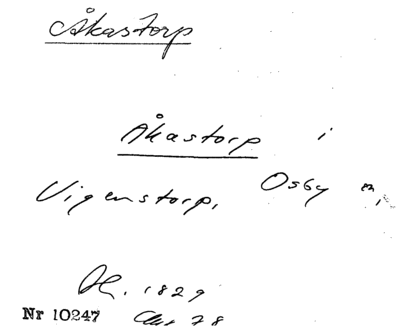 Åkastorp
Åkastorp i
Vigenstorp, Osby
1829
Nr 10247 78